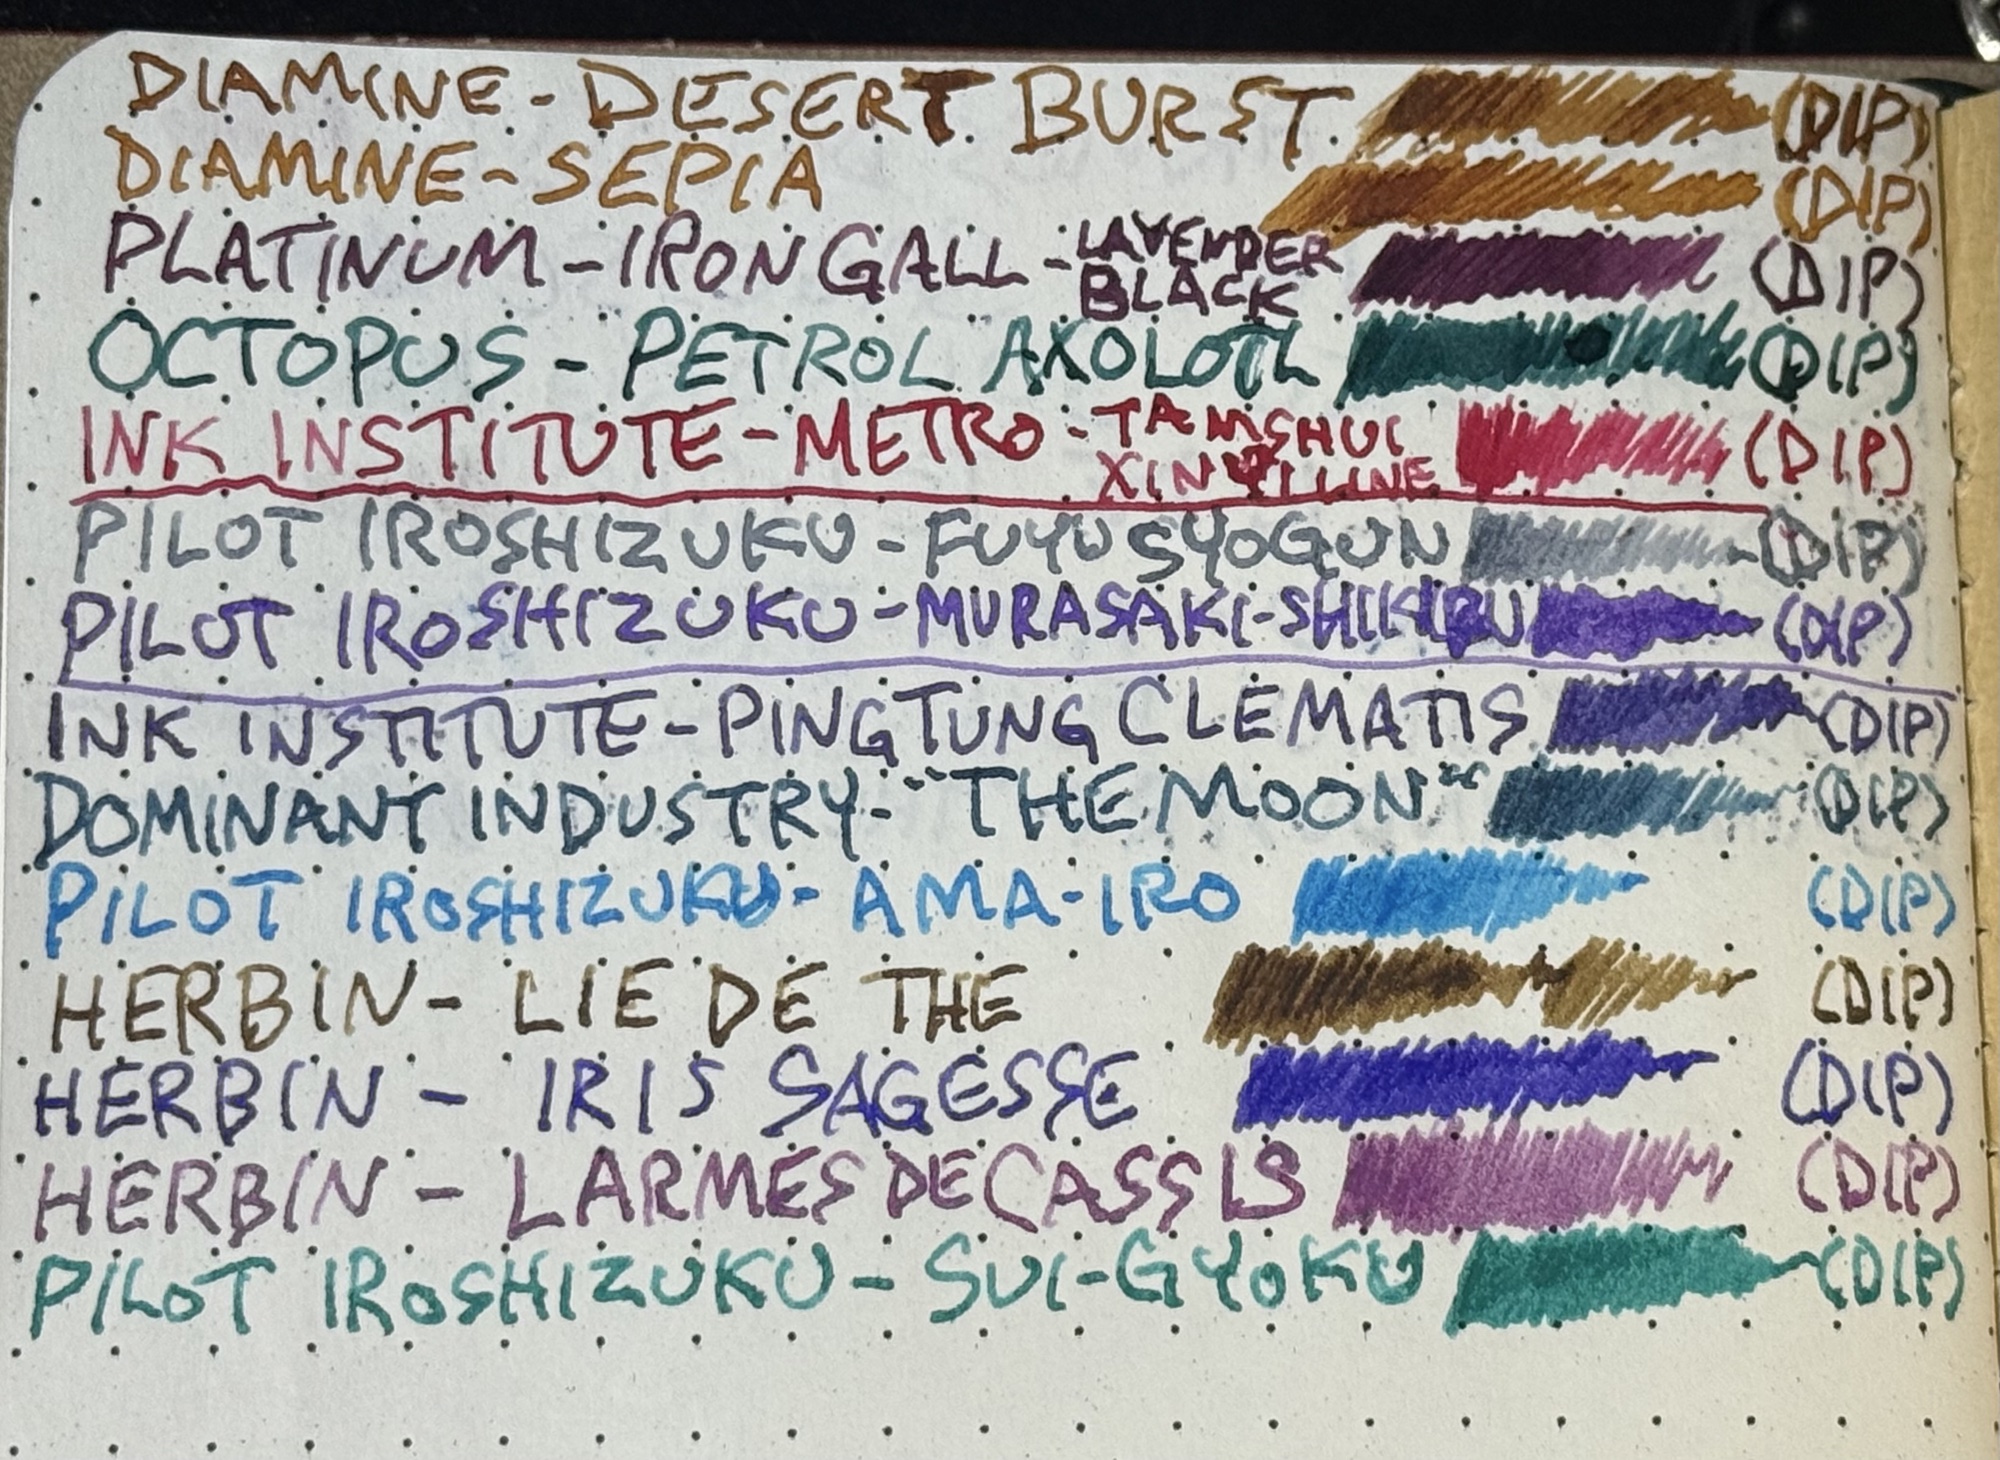 DIAMINE - DESERT BURST (DIP)
DIAMINE - SEPIA (DIP)
PLATINUM - IRON GALL - LAVENDER BLACK (DIP)
OCTOPUS - PETROL AXOLOTL (DIP)
INK INSTITUTE - METRO - TAMSHUI XINYI LINE (DIP)
PILOT IROSHIZUKU - FUYU SYOGUN (DIP)
PILOT IROSHIZUKU - MURASAKI-SHIKIBU (DIP)
INK INSTITUTE - PINGTUNG CLEMATIS (DIP)
DOMINANT INDUSTRY - "THE MOON" (DIP)
PILOT IROSHIZUKU - AMA-IRO (DIP)
HERBIN - LIE DE THE (DIP)
HERBIN - IRIS SAGESSE (DIP)
HERBIN - LARMES DE CASSIS (DIP)
PILOT IROSHIZUKU - SUI-GYOKU (DIP)